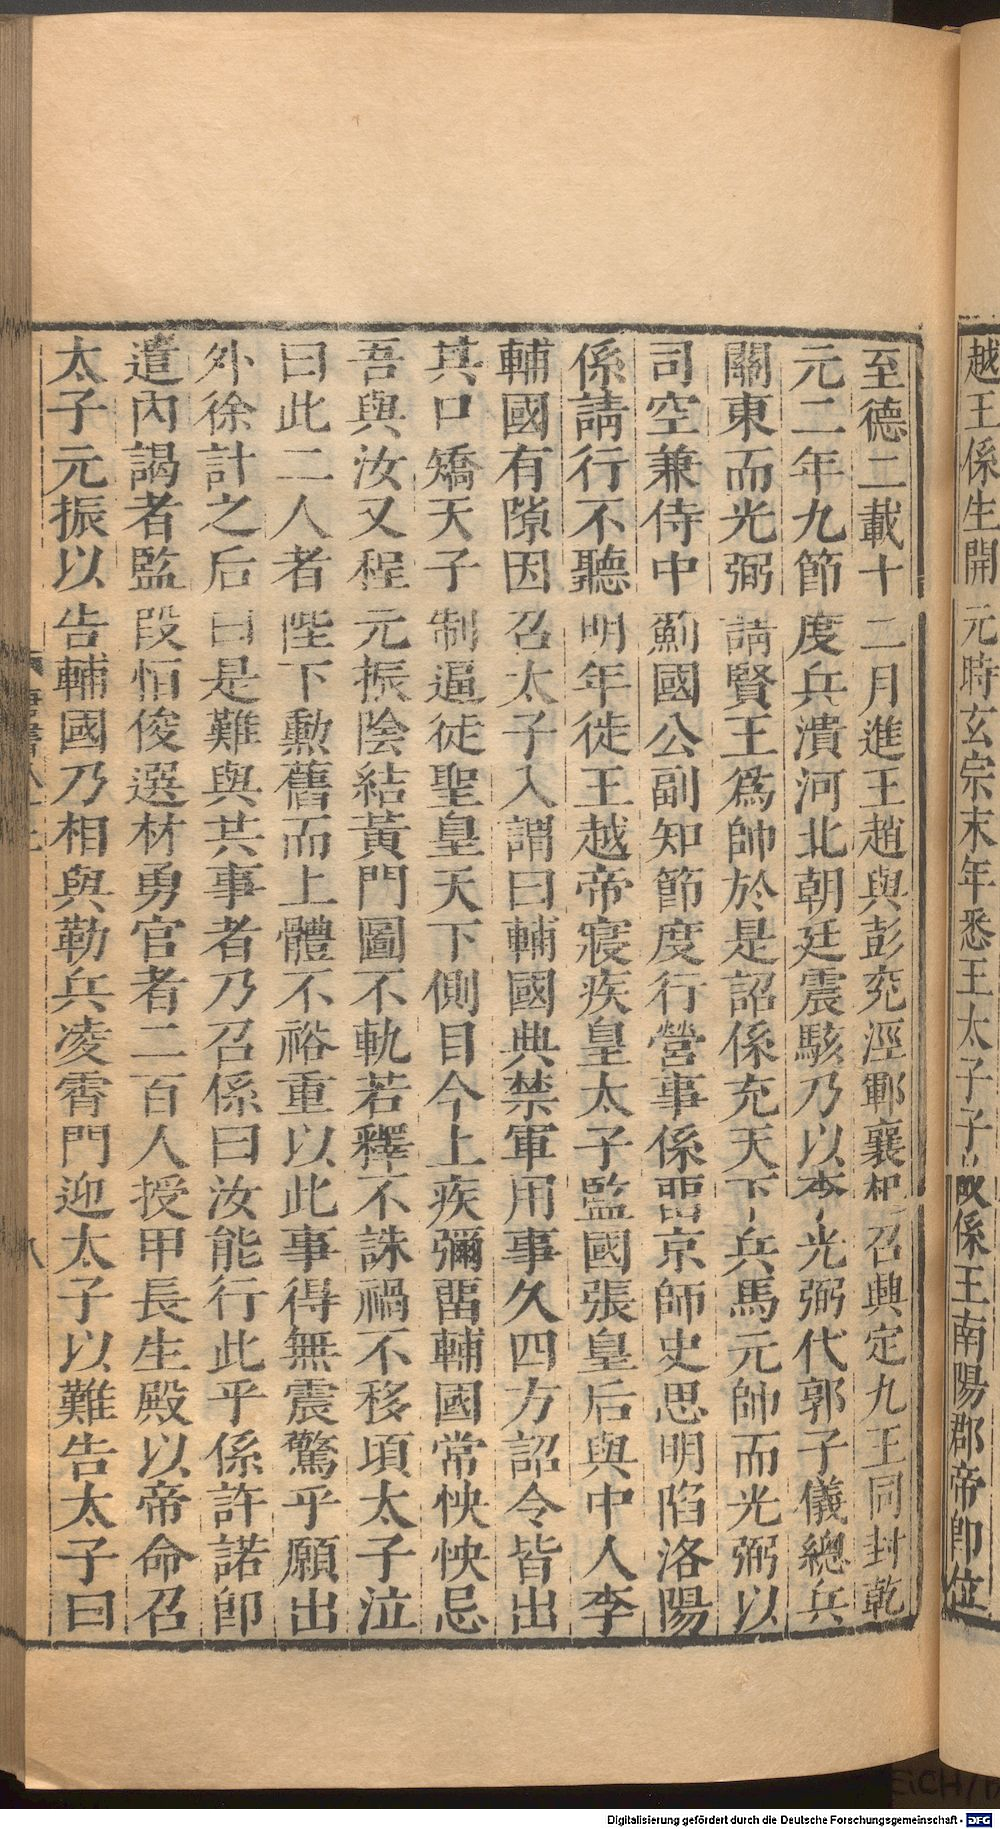 越王係生開元時玄宗末年悉王太子子故係王南陽郡帝卽位
至德二載十二月進王趙與彭兗涇鄆襄杞召興定九王同封乾
元二年九節度兵潰河北朝廷震駭乃以李光弼代郭子儀總兵
關東而光弼請賢王爲帥於是詔係充天下兵馬元帥而光弼以
司空兼侍中薊國公副知節度行營事係畱京師史思明陷洛陽
係請行不聽明年徙王越帝寢疾皇太子監國張皇后與中人李
輔國有隙因召太子入謂曰輔國典禁軍用事久四方詔令皆出
其口矯天子制逼徒聖皇天下側目今上疾彌畱輔國常怏怏忌
吾與汝又程元振陰結黃門圖不軌若釋不誅禍不移頃太子泣
曰此二人者陛下勳舊而上體不裕重以此事得無震驚乎願出
外徐計之后曰是難與共事者乃召係曰汝能行此乎係許諾卽
遣內謁者監段恒俊選材勇官者二百人授甲長生殿以帝命召
太子元振以告輔國乃相與勒兵凌霄門迎太子以難告太子曰
八
Digitalisierung gefördert durch die Deutsche Forschungsgemeinschaft - DFG